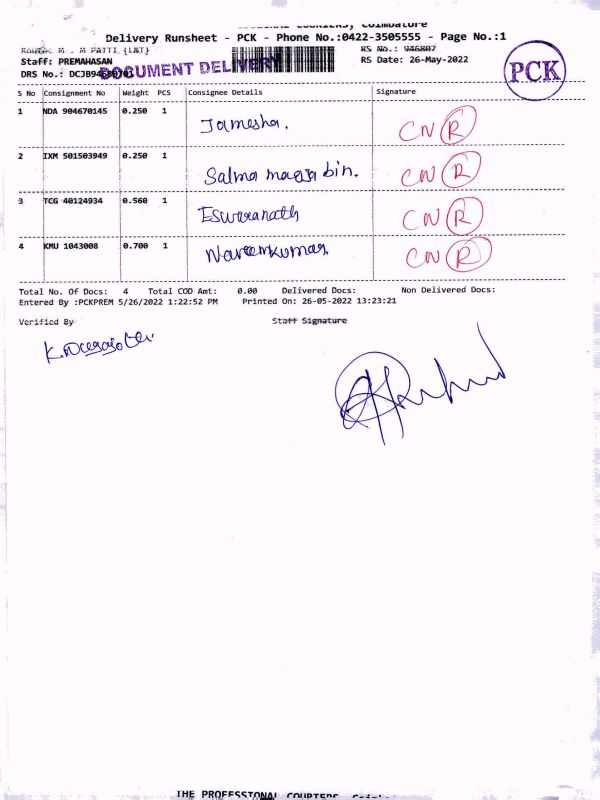 COURIERS, Coimbatore
Delivery Runsheet - PCK - Phone No.:0422-3505555 - Page No.:1
M - M PATTI {L&T} RS No.: 946807
Staff: PREMAHASAN RS Date: 26-May-2022
DRS No.: DOCUMENT DELIVERY
PCK
S No Consignment No Weight PCS Consignee Details Signature
1 NDA 904670145 0.250 1 Jamesha. CN R
2 IXM 501503949 0.250 1 Salma bin. CN R
3 TCG 40124934 0.560 1 Eswaranath CN R
4 KMU 1043008 0.700 1 CN R
Total No. Of Docs: 4 Total COD Amt: 0.00 Delivered Docs: Non Delivered Docs:
Entered By :PCKPREM 5/26/2022 1:22:52 PM Printed On: 26-05-2022 13:23:21
Verified By Staff Signature
THE PROFESSIONAL COURIERS,